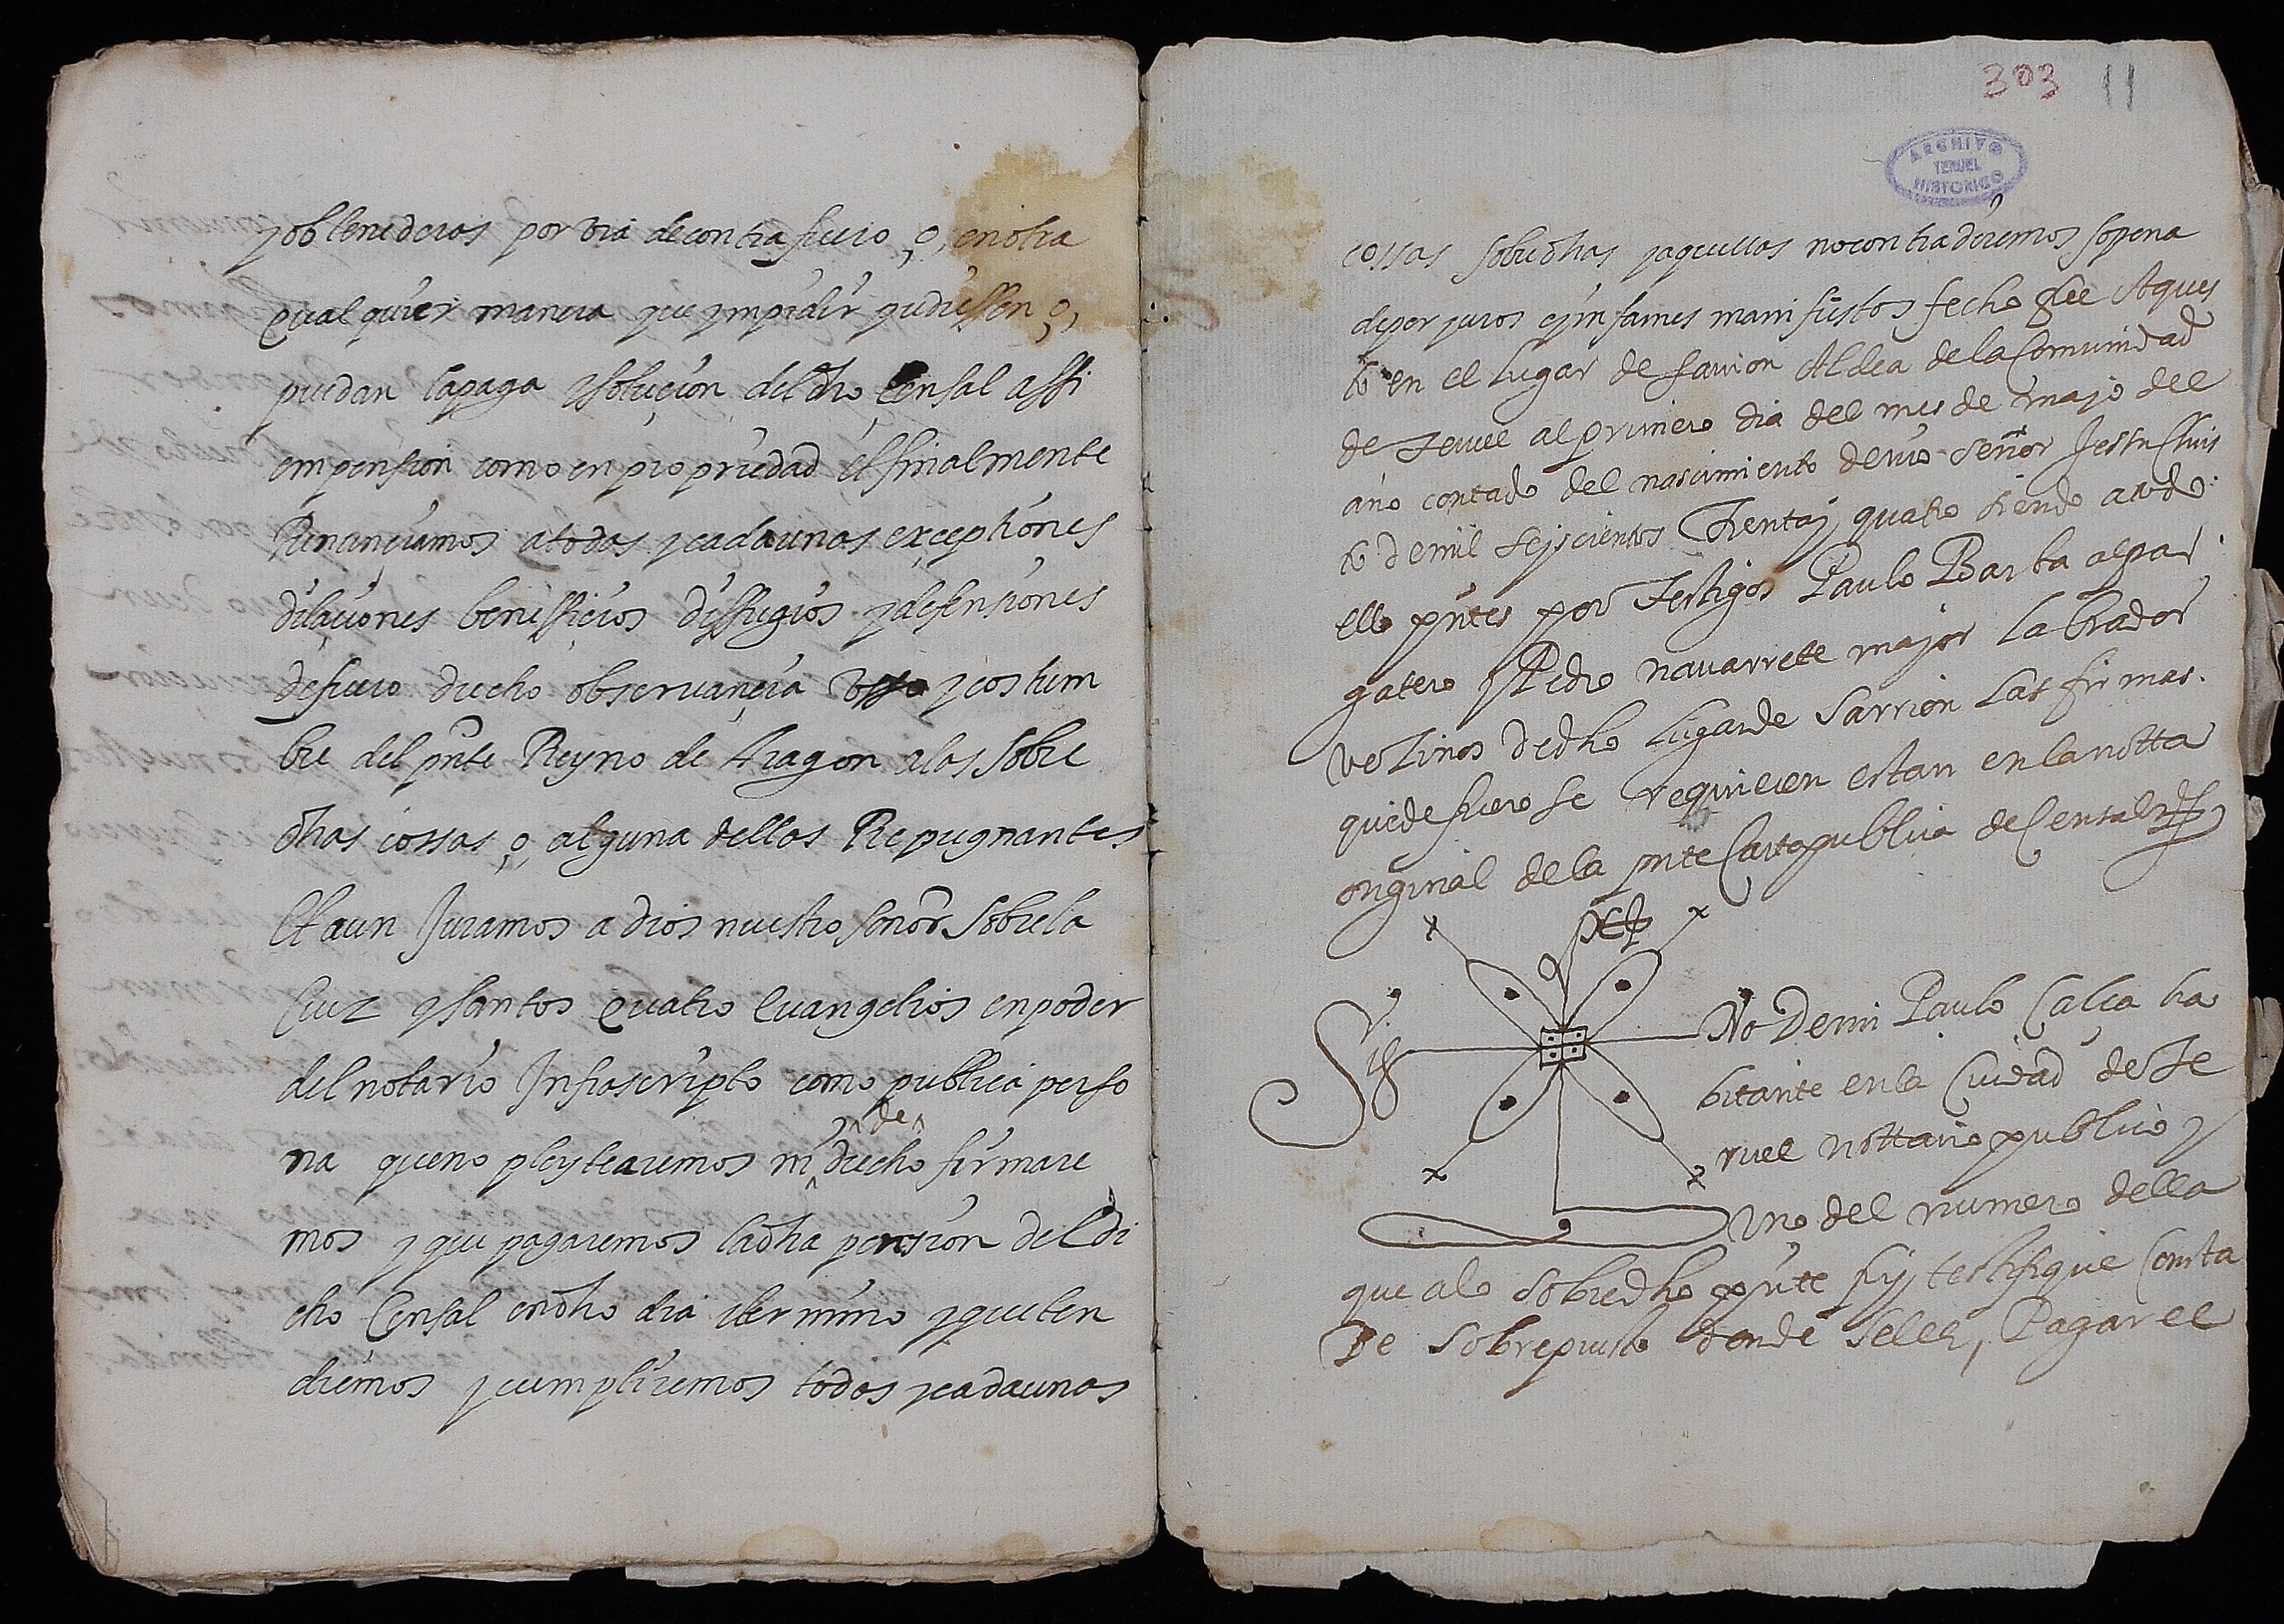 y obtenideras por via de contrafuero, o, en otra
qualquier manera que ympidir pudiessen, o,
puedan la paga ysoluçion del dho Censal assi
en pension como en propriedad et finalmente
Renunçiamos a todas y cada unas exçeptiones
dilaciones benefficios diffugios y defensiones
de fuero drecho observançia vsso y costum
bre del pnte Reyno de Aragon a las sobre
dhas cossas, o, alguna dellas Repugnantes
Et aun Juramos a dios nuestro señor sobre la
Cruz y santos quatro Evangelios en poder
del notario Infrascripto como publica perso
na que no pleytearemos ni de drecho firmare
mos y que pagaremos la dha pension del di
cho Censal en dho dia y termino y que ten
dremos y cumpliremos todas y cada unas
303 11
ARCHIVO
TERUEL
HISTORICO
cossas sobredhas y aquellas no contraderemos sopena
de perjuros e ynfames manifiestos fecho fue Aques
to en el Lugar de Sarrion Aldea de la Comunidad
de Teruel al primero dia del mes de mayo del
año contado del nascimiento de nro señor Jesu Chris
to de mil seyscientos Trenta y quatro siendo a todo
ello pntes por Testigos Paulo Barba alpar
gatero y Pedro navarrete mayor labrador
vezinos de dho Lugar de Sarrion Las firmas
que de fuero se requieren estan en la notta
original de la pnte Carta publica de Censal
Sig No De mi Paulo Calça ha
bitante en la Ciudad de Te
ruel nottario publico y
Uno del numero della
que a lo sobredho pnte fuy y testifique Consta
De sobrepuesto donde se lee, Pagar el